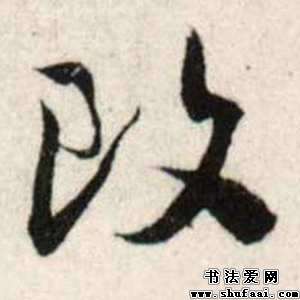 改
书法爱网
www.shufaai.com